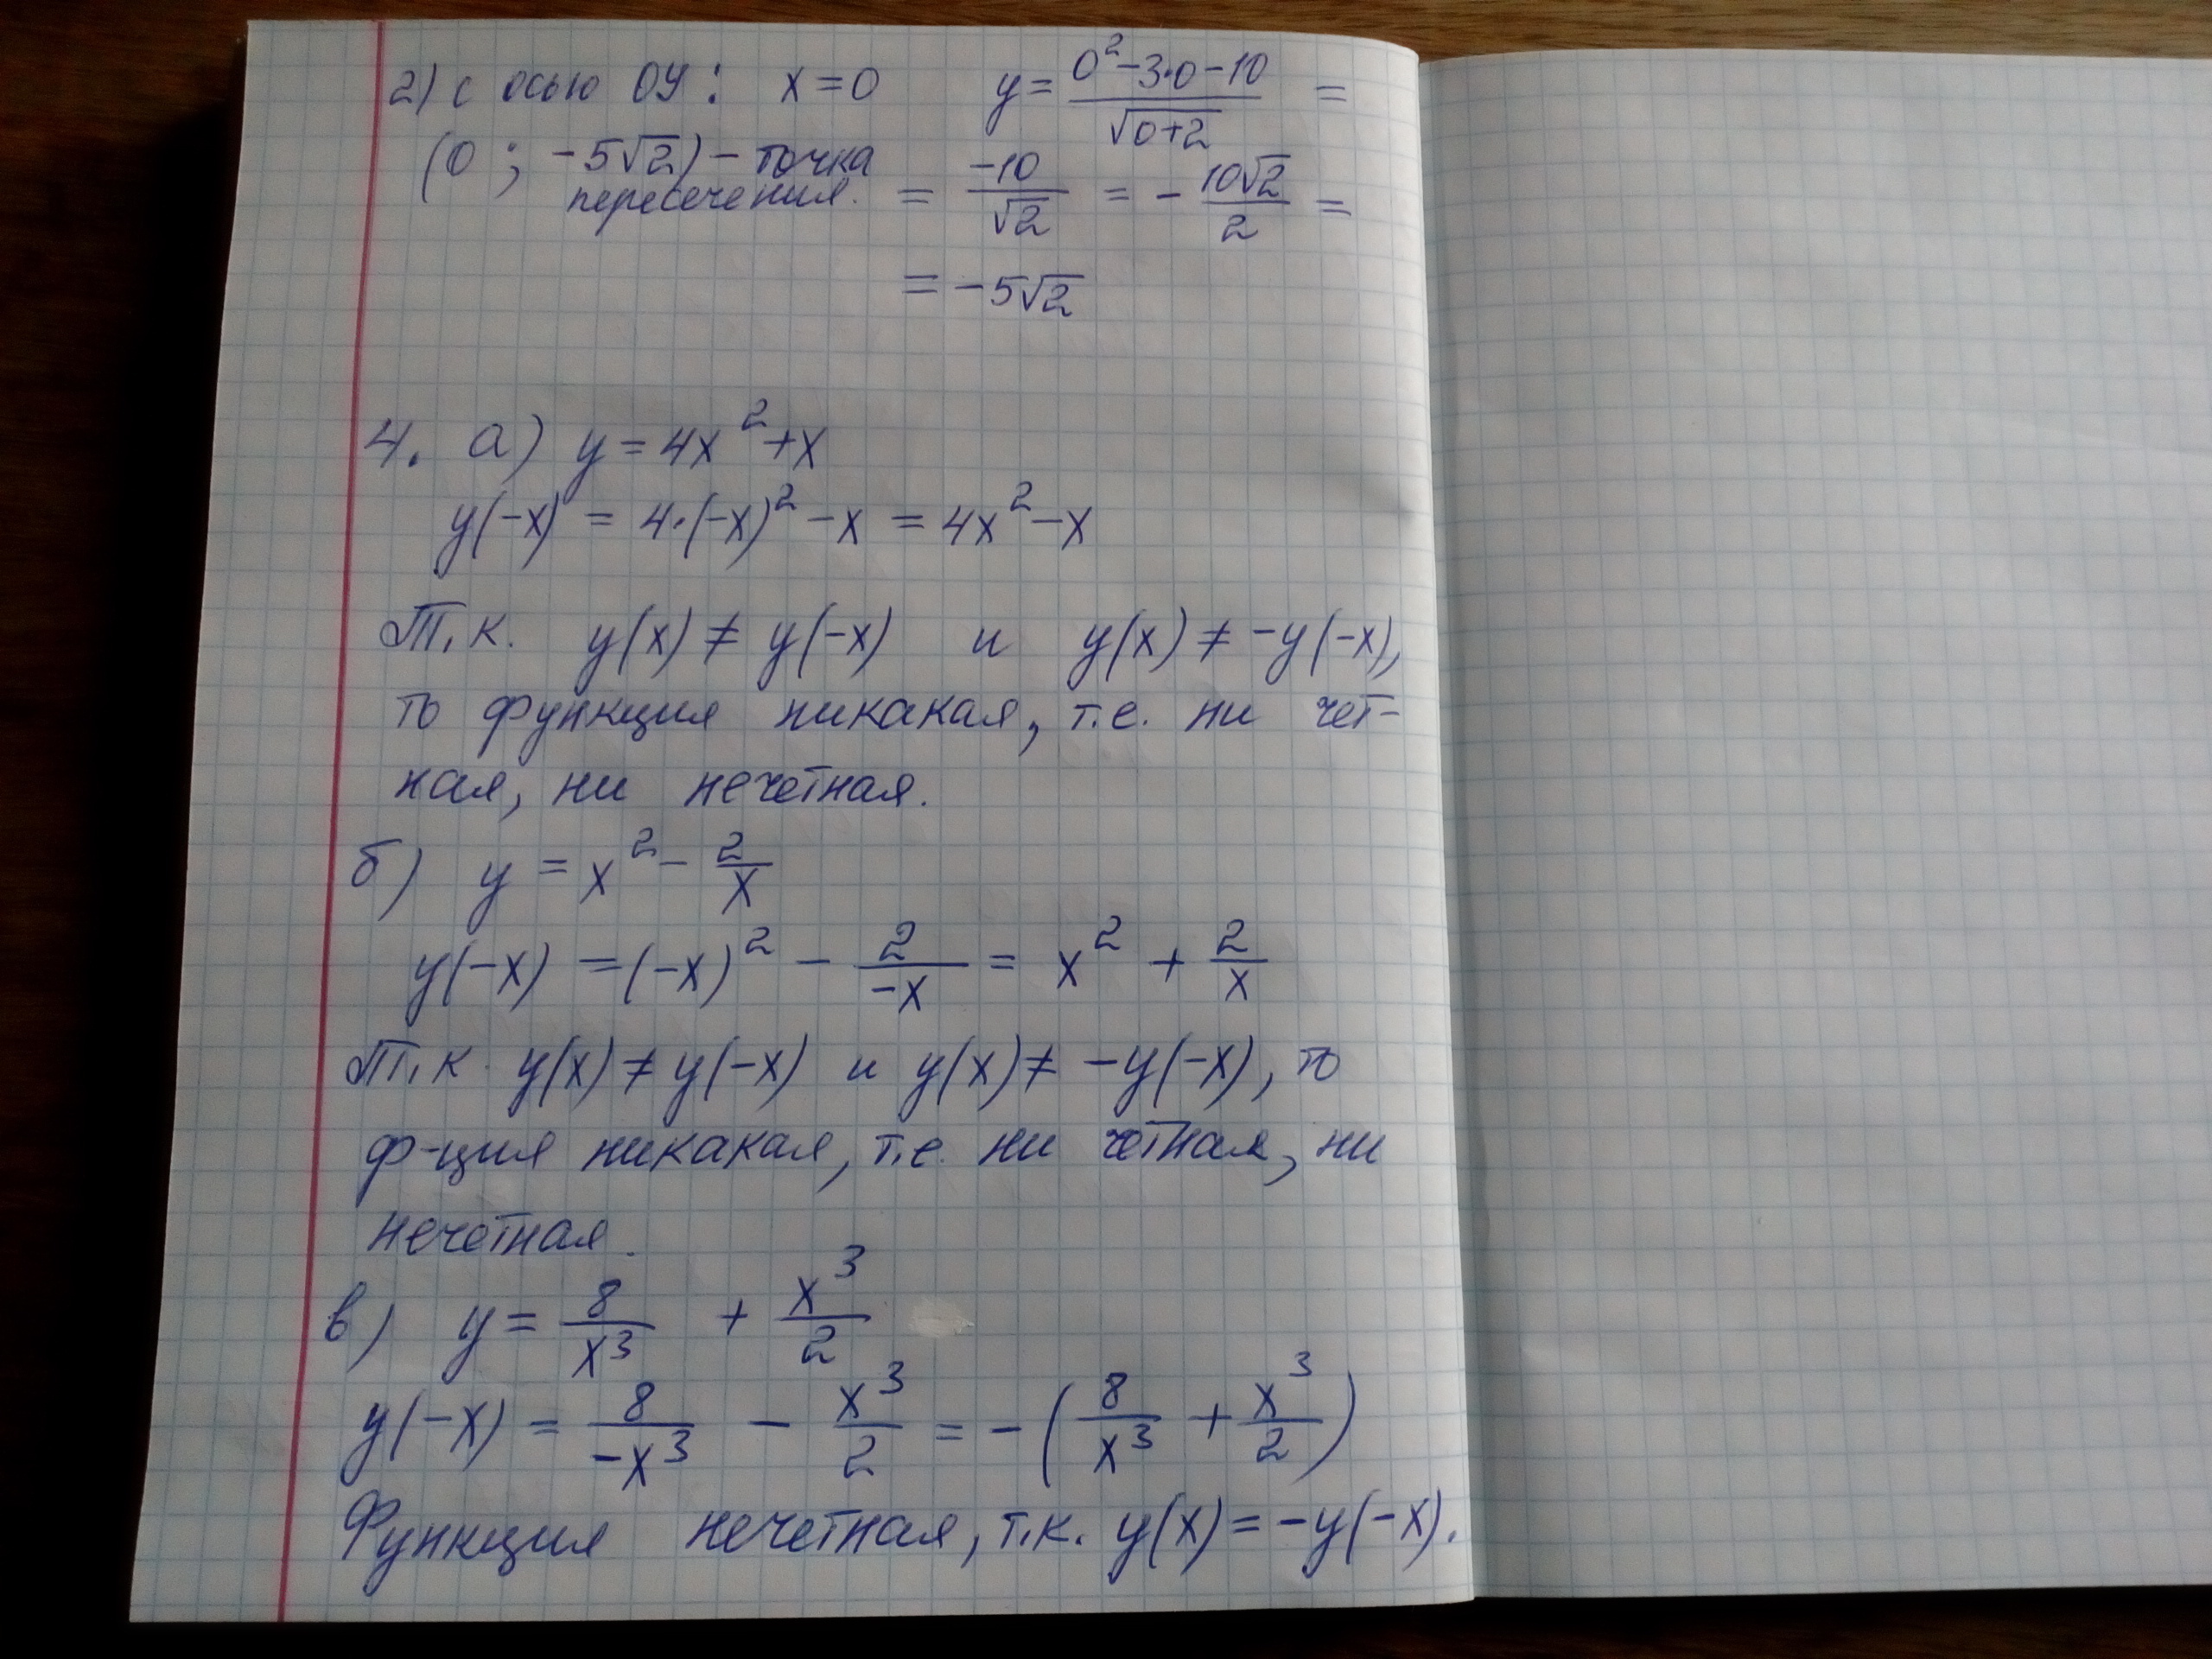 2) с осью ОУ: x = 0 y = (0² - 3·0 - 10)/√(0+2) =
(0 ; -5√2) - точка
пересечения. = -10/√2 = - 10√2/2 =
= -5√2
4. а) y = 4x² + x
y(-x) = 4·(-x)² - x = 4x² - x
Т.к. y(x) ≠ y(-x) и y(x) ≠ -y(-x),
то функция никакая, т.е. ни чет-
ная, ни нечетная.
б) y = x² - 2/x
y(-x) = (-x)² - 2/-x = x² + 2/x
Т.к. y(x) ≠ y(-x) и y(x) ≠ -y(-x), то
ф-ция никакая, т.е. ни четная, ни
нечетная.
в) y = 8/x³ + x³/2
y(-x) = 8/-x³ - x³/2 = -(8/x³ + x³/2)
Функция нечетная, т.к. y(x) = -y(-x).